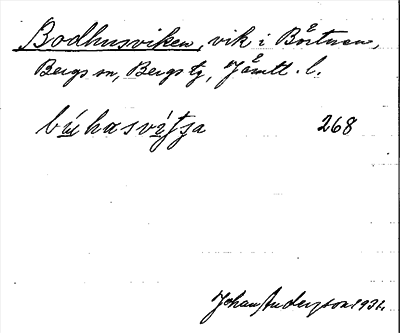 Bodhusviken, vik i Börtnen,
Bergs sn, Bergs tg, Jämtl. l.
268
Johan Anderson 1931.